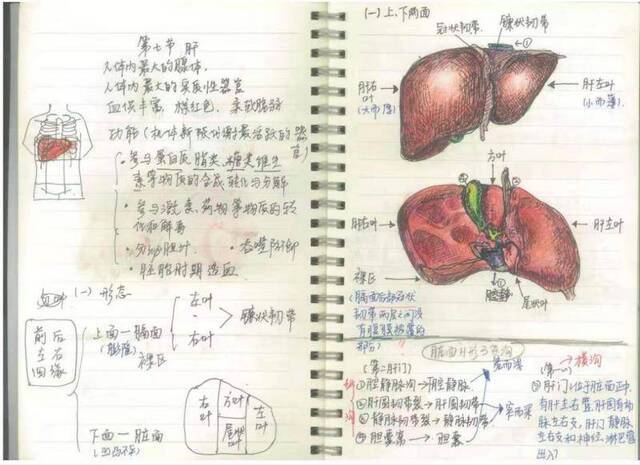 第七节 肝
人体内最大的腺体.
人体内最大的实质性器官
血供丰富 棕红色. 柔软脆弱
功能(机体新陈代谢最活跃的器官)
· 参与蛋白质 脂类 糖类 维生
素等物质的合成、转化与分解
· 参与激素、药物等物质的转
化和解毒
· 分泌胆汁. · 吞噬防御
· 胚胎时期造血.
(一) 形态
前后
左右
四缘
上面—膈面
(膨隆)
左叶
右叶
镰状韧带
裸区
下面—脏面
(凹凸不平)
右叶
方叶
尾状叶
左叶
(一) 上、下两面
冠状韧带
镰状韧带
肝右叶
(大而厚)
肝左叶
(小而薄)
方叶
肝右叶
肝左叶
裸区
腔静脉
尾状叶
(膈面后部冠状
韧带两层之间没
有腹膜被覆的
部分)
脏面H形三条沟
(第二肝门)
①腔静脉沟→腔静脉
②肝圆韧带裂→肝圆韧带
③静脉韧带裂→静脉韧带
④胆囊窝→胆囊
宽而浅
窄而深
(第一)→横沟
肝门:位于脏面正中
有肝左右管,肝固有动
脉左右支,肝门静脉
左右支和神经、淋巴管
出入